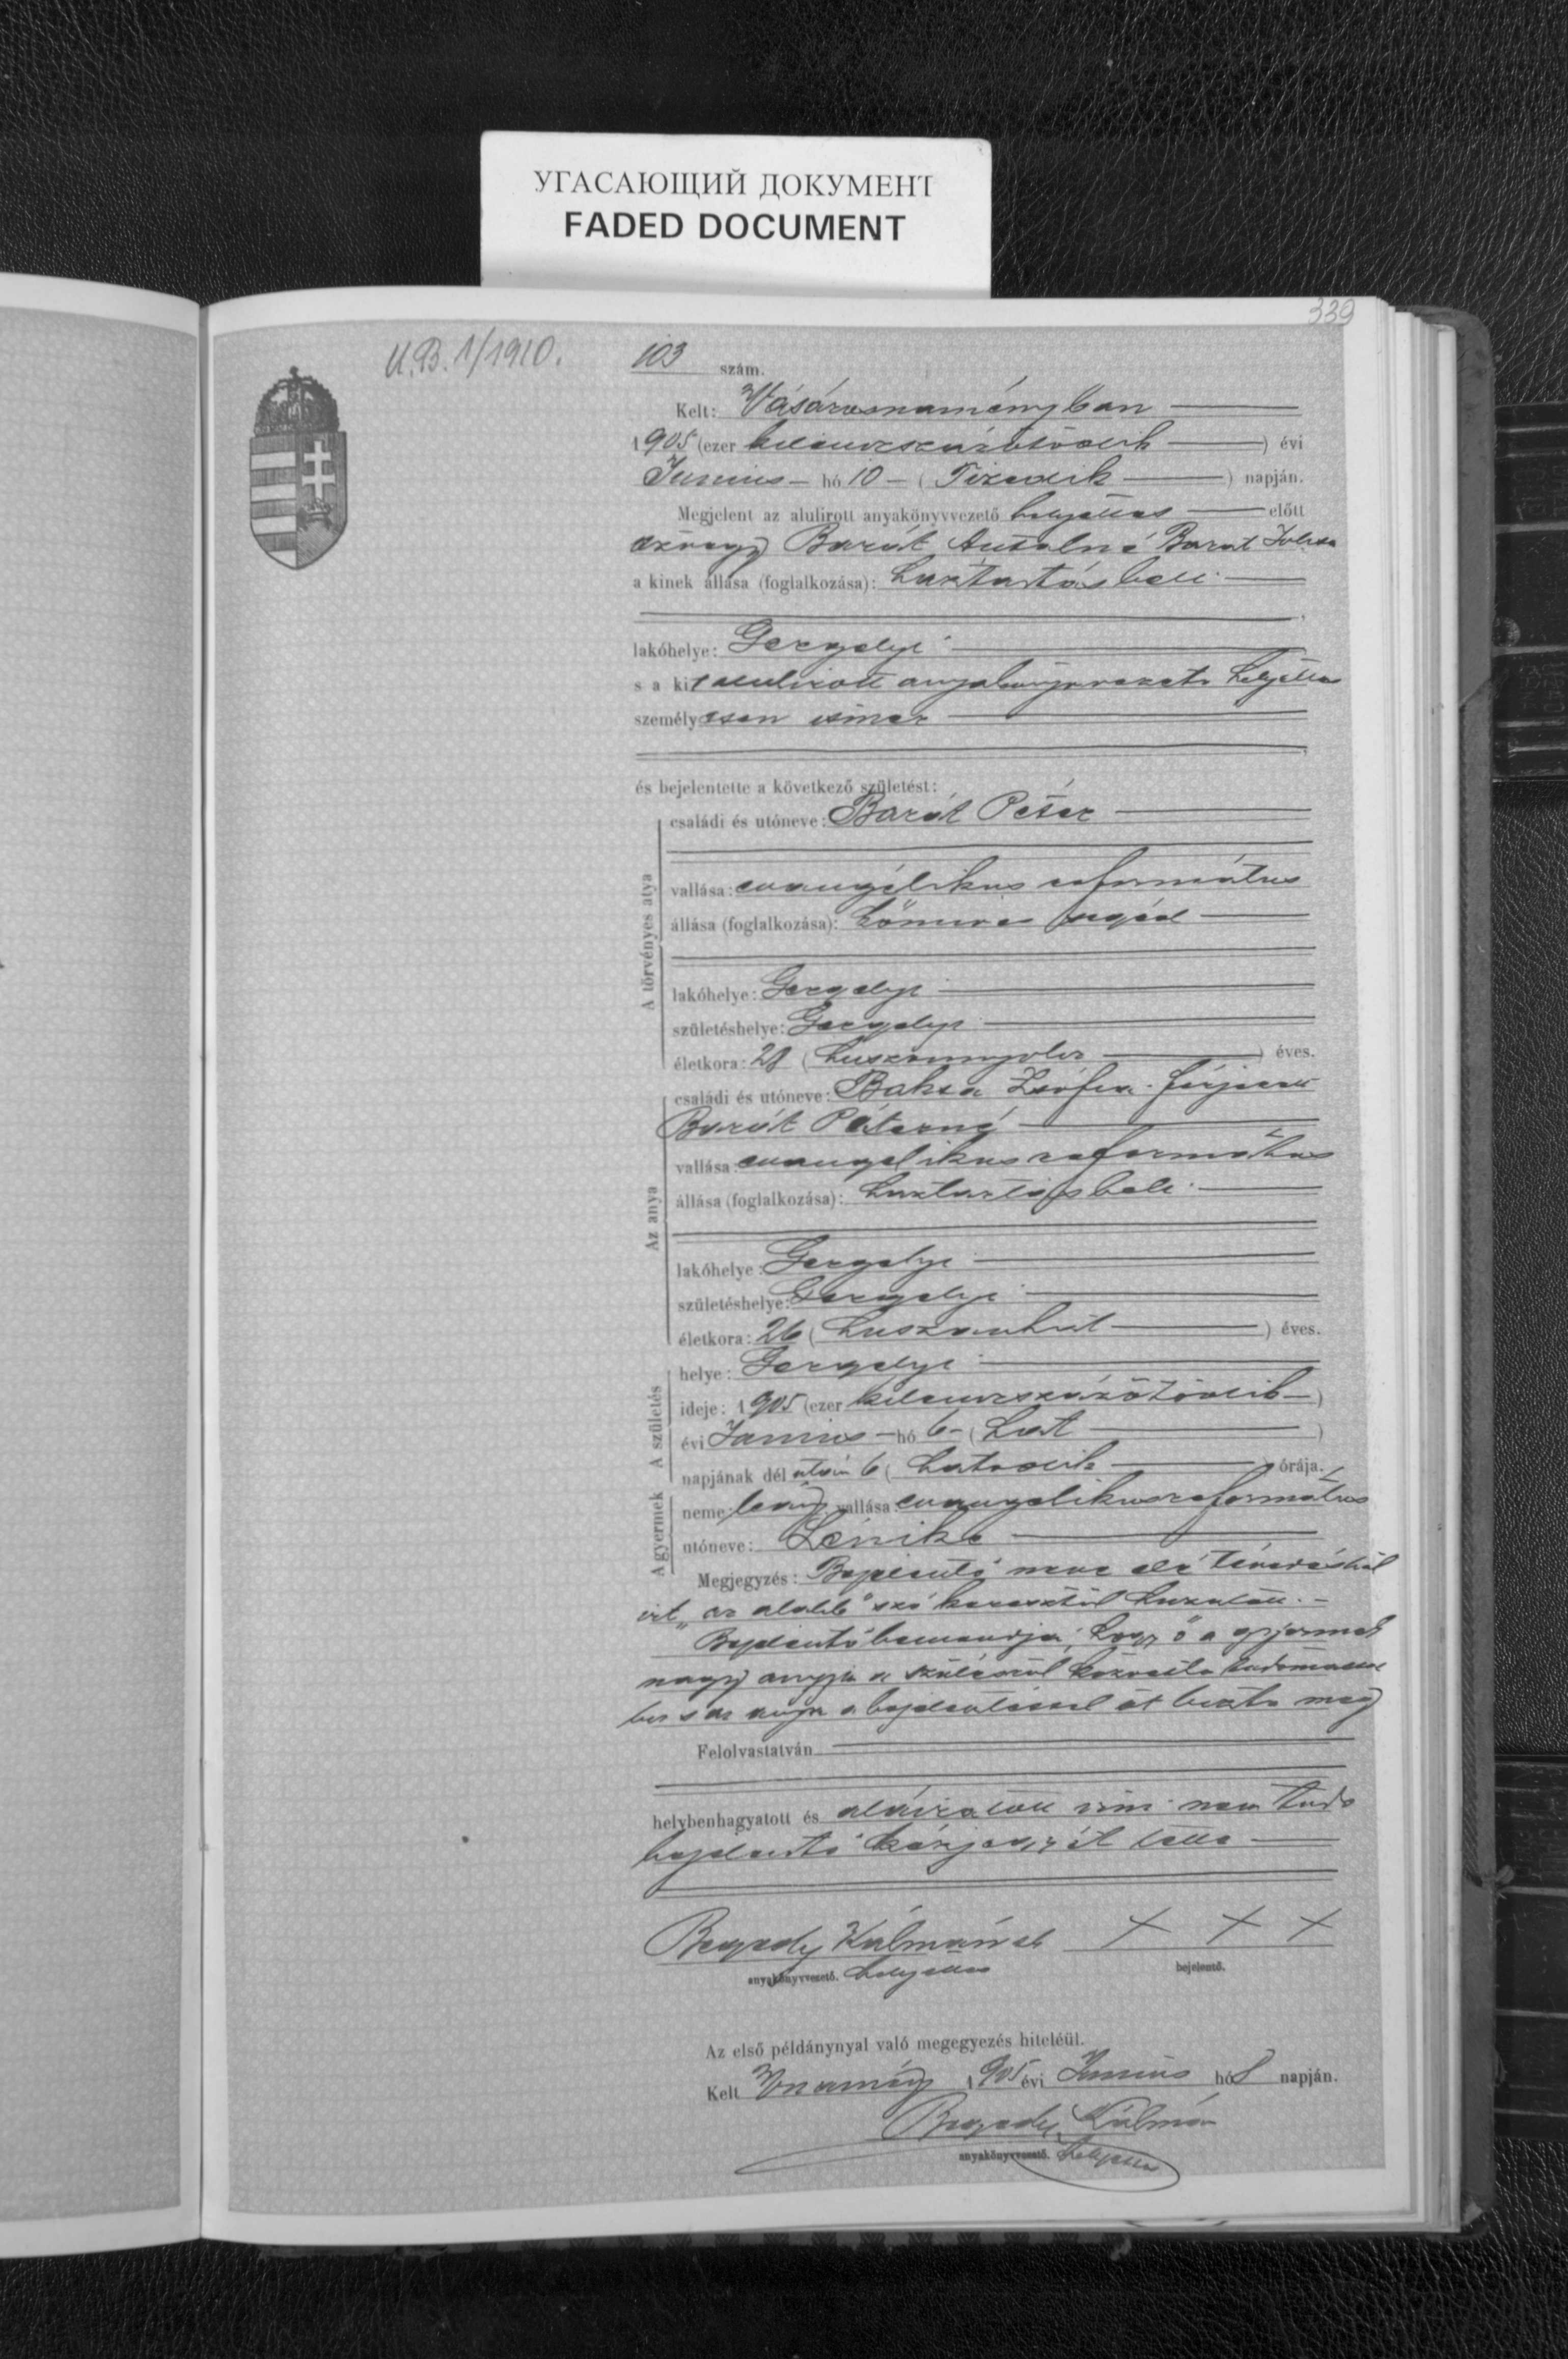 УГАСАЮЩИЙ ДОКУМЕНТ
FADED DOCUMENT
339
U.B. 1/1910.
103 szám.
Kelt: Vásárosnaményban
1905 (ezer kilenczszázötödik) évi
Junius hó 10 (Tizedik) napján.
Megjelent az alulirott anyakönyvvezető helyettes előtt
özvegy Barát Antalné Barat
a kinek állása (foglalkozása): háztartásbeli
lakóhelye: Gergelyi
s a kit alulirott anyakönyvvezető helyettes
személyesen ismer
és bejelentette a következő születést:
A törvényes atya
családi és utóneve: Barát Péter
vallása: evangélikus református
állása (foglalkozása): kőmives segéd
lakóhelye: Gergelyi
születéshelye: Gergelyi
életkora: 28 (huszonnyolcz) éves.
Az anya
családi és utóneve: Baksa Zsófia férjezett
Barát Péterné
vallása: evangelikus református
állása (foglalkozása): háztartásbeli
lakóhelye: Gergelyi
születéshelye: Gergelyi
életkora: 26 (huszonhat) éves.
A születés
helye: Gergelyi
ideje: 1905 (ezer kilenczszázötödik)
évi Junius hó 6 (hat)
napjának dél után 6 (hatodik) órája.
A gyermek
neme: leány vallása: evangelikus református
utóneve: Lenike
Megjegyzés: Bejelentő neve elé tévedésből
irt „az alább" szó keresztül huzatott.
Bejelentő bemondja, hogy ő a gyermek
nagy anyja a szülésről közvetlen tudomással
bir s az anya a bejelentéssel őt bizta meg
Felolvastatván
helybenhagyatott és aláiratott irni nem tudó
bejelentő kézjegyét tette
Kálmán
x x x
anyakönyvvezető. helyettes
bejelentő.
Az első példánynyal való megegyezés hiteléül.
Kelt Vnamény 1905 évi Junius hó 8 napján.
Kálmán
anyakönyvvezető. helyettes